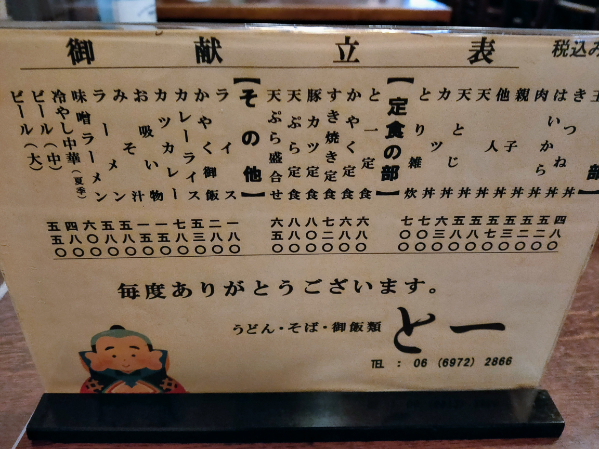 御献立表
税込み
部
玉　　　丼
きつね丼
はいから丼
肉　　　丼
親子丼
他人丼
天　　　丼
天とじ丼
カツ丼
とり雑炊
四八〇
五二〇
五二〇
五三〇
五七〇
五八〇
五八〇
六三〇
七〇〇
七〇〇
【定食の部】
と一定食
かやく定食
すき焼き定食
豚カツ定食
天ぷら定食
天ぷら盛合せ
六八〇
六八〇
七二〇
八〇〇
八八〇
六五〇
【その他】
ライス
かやく御飯
カレーライス
カツカレー
お吸い物
みそ汁
ラーメン
味噌ラーメン
冷やし中華(夏季)
ビール(中)
ビール(大)
一八〇
二八〇
五三〇
七八〇
一五〇
一五〇
五〇〇
六八〇
六〇〇
四五〇
五五〇
毎度ありがとうございます。
うどん・そば・御飯類
と一
TEL : 06 (6972) 2866